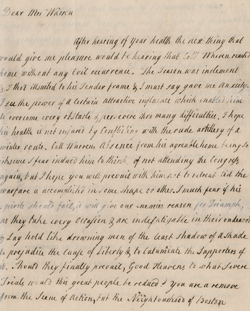 Dear Mrs Warren
After hearing of your health the next thing that
would give me pleasure would be hearing that Coll Warren reachd
home without any evil occurrence. The Season was inclement
& this allotted to his tender frame & I must say gave me anxiety.
the power of a certain attractive influence which enabled him
to overcome every obstacle & persevere thro many difficulties. I hope
his health is not injured by conflicting with the rude artillery of a
winter rode. Coll Warrens absence from his agreable home being so
I fear induce him to think of not attending the Congress
again, but I hope you will prevail with him not to retreat till the
warfare is accomplishd in one shape or other. I much fear if his
should fail, it will give our enemies reason for Triumph,
as they take every occasion & are indefatigable in their endeavours
to Lay hold like drowning men of the least shadow of a shade
to prejudice the cause of Liberty & to calumniate the Supporters of
it. Should they finally prevail, Good Heavens to what severe
Trials would this great people be reduced & you are a remove
from the Scene of Action, but the Neighbourhood of Boston